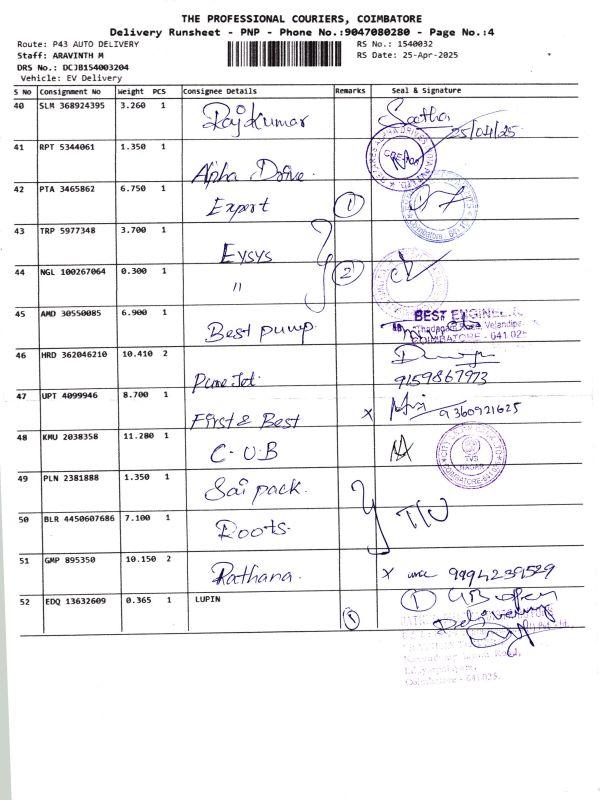 THE PROFESSIONAL COURIERS, COIMBATORE
Delivery Runsheet - PNP - Phone No.:9047080280 - Page No.:4
Route: P43 AUTO DELIVERY RS No.: 1540032
Staff: ARAVINTH M RS Date: 25-Apr-2025
DRS No.: DCJB154003204
Vehicle: EV Delivery
S No Consignment No Weight PCS Consignee Details Remarks Seal & Signature
40 SLM 368924395 3.260 1 Rajkumar Seetha 25/04/25
41 RPT 5344061 1.350 1 Alpha Drive.
42 PTA 3465862 6.750 1 Expert 1
43 TRP 5977348 3.700 1 Eysys
44 NGL 100267064 0.300 1 " 2
45 AMD 30550085 6.900 1 Best pump. BEST ENGINE
Thadagam Road, Velandipa
COIMBATORE - 641 025
46 HRD 362046210 10.410 2 Pure Jet. 9159867973
47 UPT 4099946 8.700 1 First & Best x 9360921625
48 KMU 2038358 11.280 1 C.U.B
TVS NAGAR
49 PLN 2381888 1.350 1 Sai pack.
50 BLR 4450607686 7.100 1 Roots.
51 GMP 895350 10.150 2 Rathana. x 9994239529
52 EDQ 13632609 0.365 1 LUPIN 1 1
Delivery
Coimbatore - 641 025.